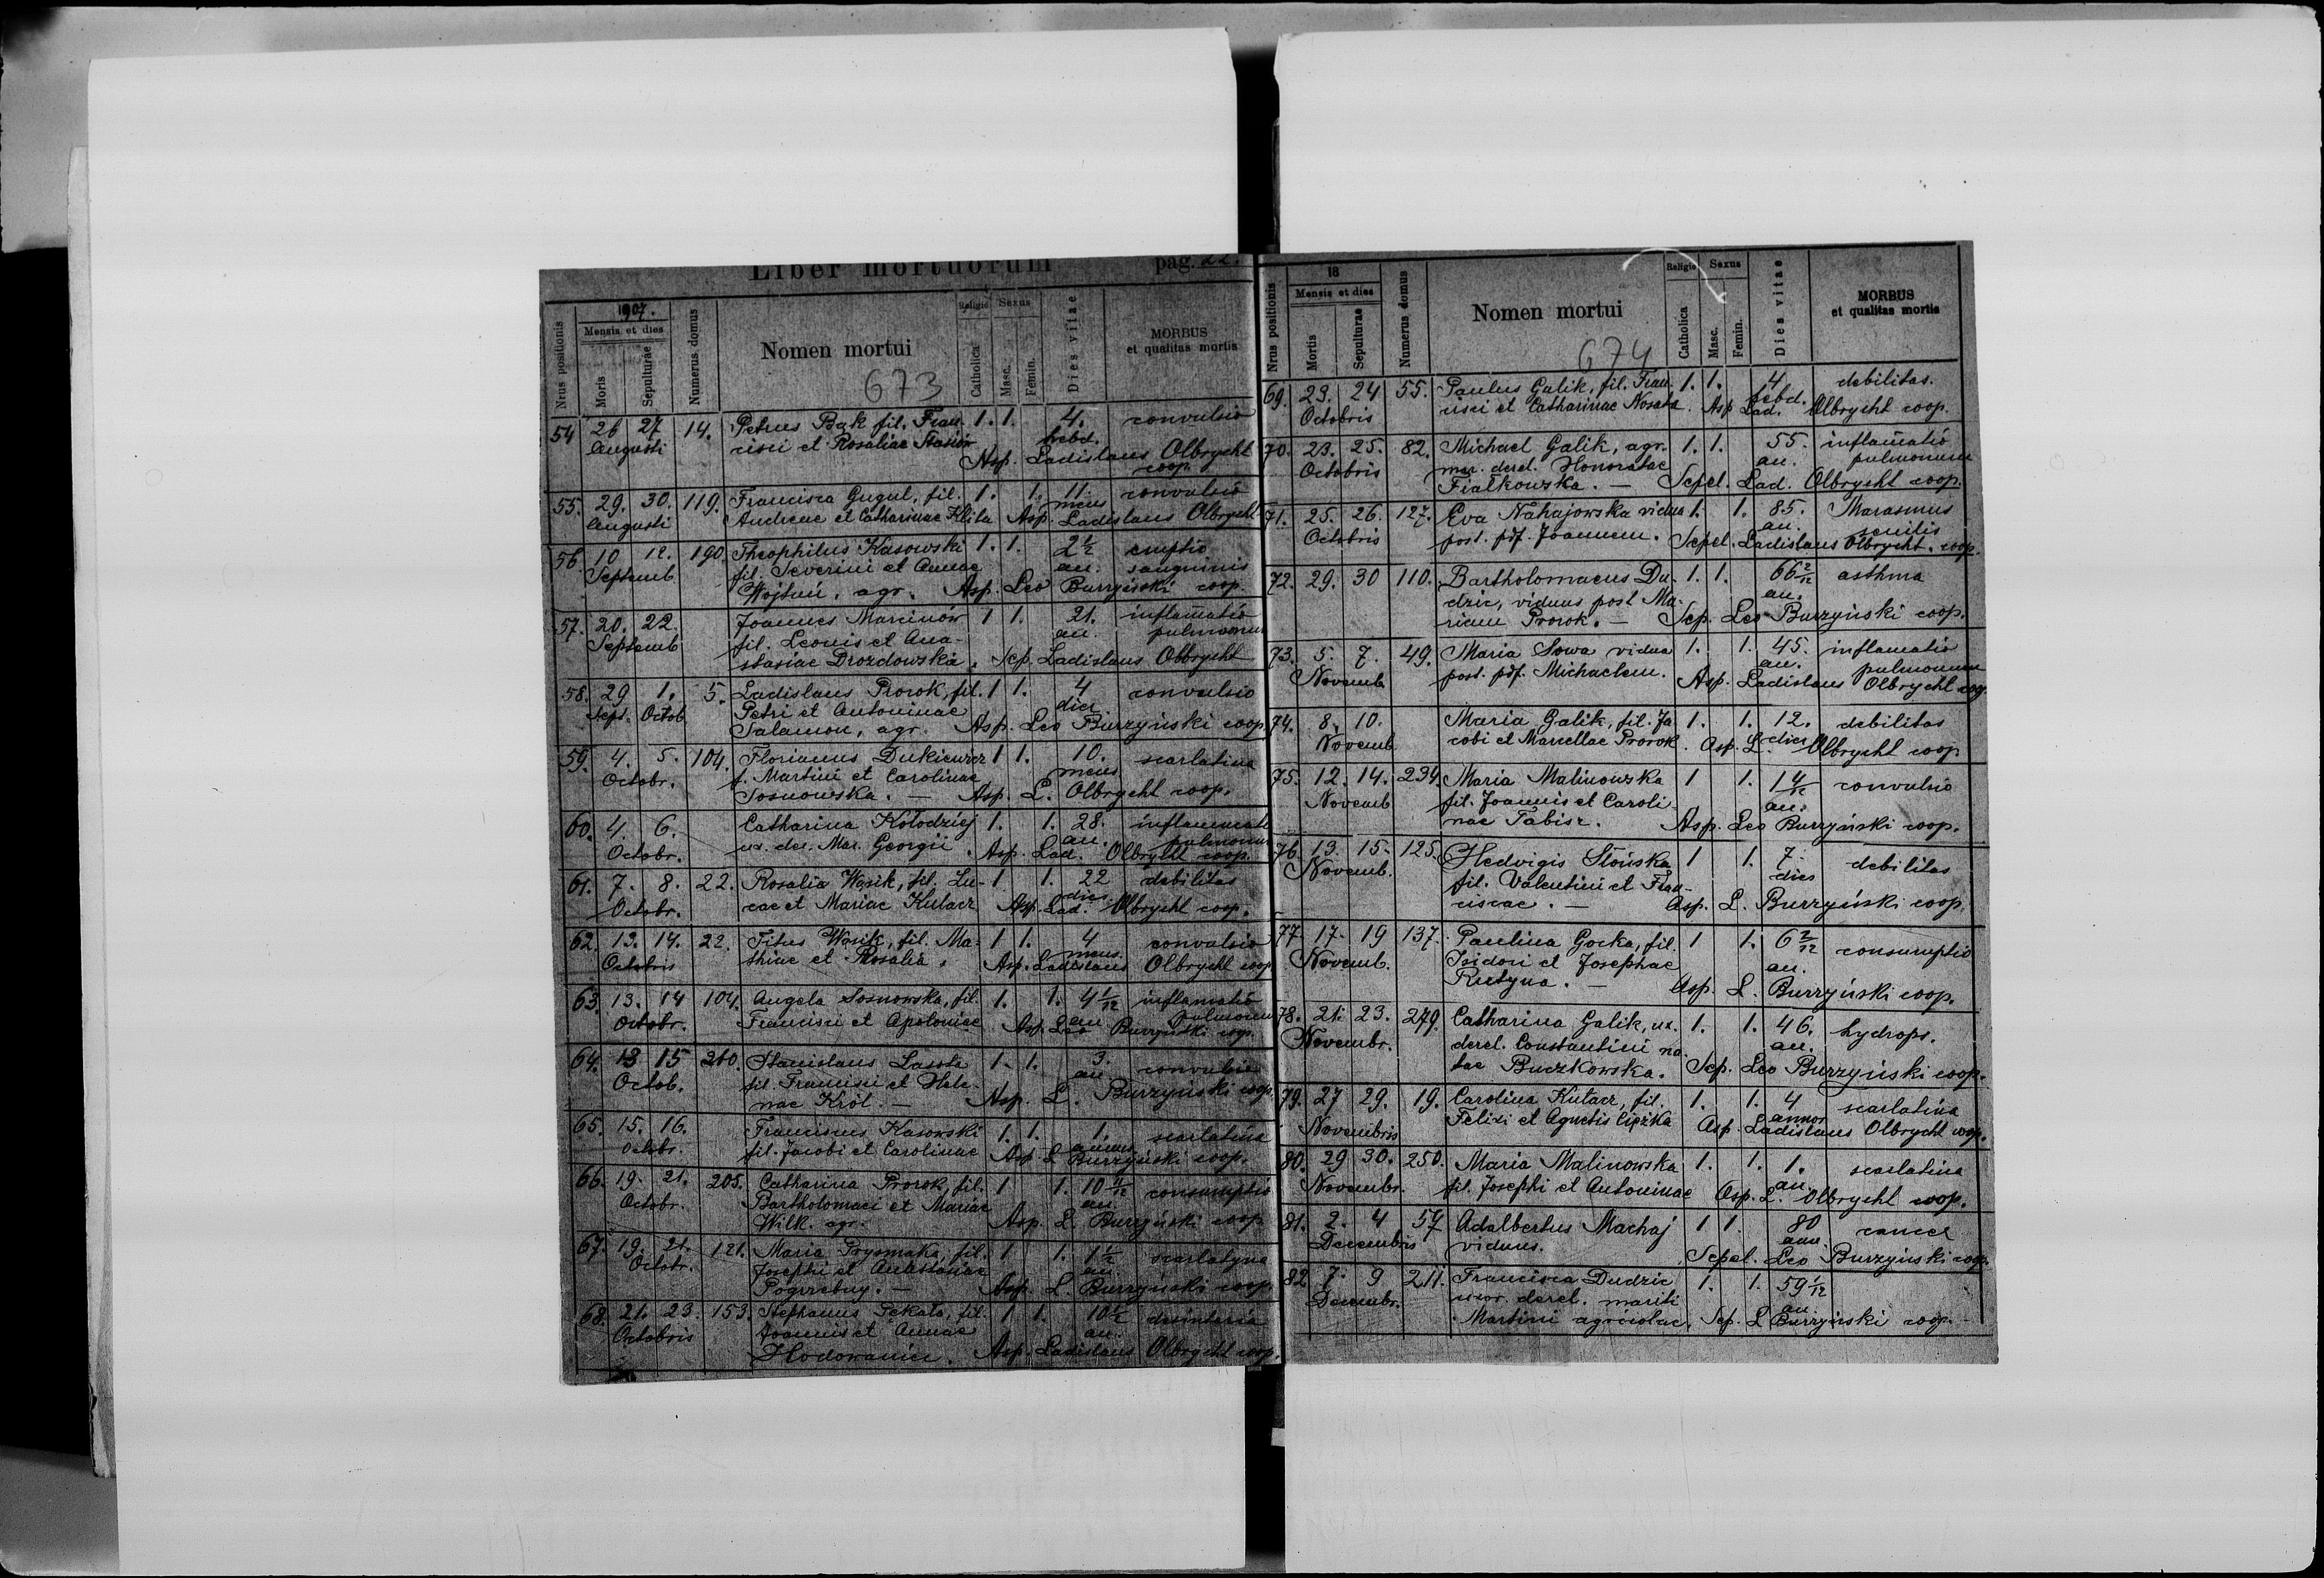 Liber mortuorum pag. 22.
1907.
Nrus positionis
Mensis et dies
Moris
Sepulturae
Numerus domus
Nomen mortui
673
Religio
Catholica
Sexus
Masc.
Femin.
Dies vitae
MORBUS
et qualitas mortis
54 26 27 14. Petrus Bąk fil. Fran- 1. 1. 4. convulsio
Augusti cisci et Rosaliae Stasiów hebd.
Asp. Ladislaus Olbrycht
coop.
55. 29. 30. 119. Francisca Gugul, fil. 1. 1. 11. convulsio
Augusti Andreae et Catharinae Klita mens Asp. Ladislaus Olbrycht
56 10 12. 190 Theophilus Kasowski 1. 1. 2½ emptio
Septemb. fil. Severini et Annae an. sanguinis
agr. Asp. Leo Burzyński coop.
57. 20. 22. Joannes Marcinów 1 1. 21. inflam̄atio
Septemb fil. Leonis et Ana- an. pulmonum
stasiae Drozdowska. Sep. Ladislaus Olbrycht
58. 29 1. 5. Ladislaus Prorok, fil. 1 1. 4 convulsio
Sept. Octob Petri et Antoninae dier.
Salamon, agr. Asp. Leo Burzyński coop.
59. 4. 5. 104. Florianus Dukiewicz 1 1. 10. scarlatina
Octobr. f. Martini et Carolinae mens
Sosnowska. — Asp. L. Olbrycht coop.
60. 4. 6. Catharina Kołodziej 1. 1. 28.
Octobr. ux. der. Mar. Georgii. an. pulmonum
Asp. Lad. Olbrycht coop.
61. 7. 8. 22. Rosalia Wąsik, fil. Lu- 1 1. 22 debilitas
Octobr. cae et Mariae Kutacz dies Asp. Lad. Olbrycht coop.
62. 13. 14. 22. Titus Wąsik, fil. Ma- 1 1. 4 convulsio
Octobris thiae et Rosalia. mens. Asp. Ladislaus Olbrycht coop
63. 13. 14 104. Angela Sosnowska, fil. 1. 1. 4 1/12 inflamatio
Octobr. Francisci et Apoloniae an pulmonum
Asp. Leo Burzyński coop.
64. 13 15 260. Stanislaus Lassota 1. 1. 3. convulsio
Octob. fil. Francisci et Hele- an.
nae Król. — Asp. L. Burzyński coop.
65. 15. 16. Franciscus Kasowski 1. 1. 1. scarlatina
Octobr. fil. Jacobi et Carolinae annus Asp. L. Burzyński coop.
66. 19. 21. 205. Catharina Prorok, fil. 1 1. 10 consumptio
Octobr. Bartholomaei et Mariae an.
Wilk. agr. Asp. L. Burzyński coop
67. 19. 21. 121. Maria Prysmaka, fil. 1 1. 1½ scarlatyna
Octobr. Josephi et Anastasiae an
Pogrzebny. — Asp. L. Burzyński coop.
68. 21. 23. 153. Stephanus Sekała, fil. 1 1. 10½ desinteria
Octobris Joannis et Annae an.
Asp. Ladislaus Olbrycht coop.
18
Nrus positionis
Mensis et dies
Mortis
Sepulturae
Numerus domus
Nomen mortui
674
Religio
Catholica
Sexus
Masc.
Femin.
Dies vitae
MORBUS
et qualitas mortis
69. 23. 24 55. Paulus Galik, fil. Fran- 1. 1. 4 debilitas.
Octobris cisci et Catharinae Nosata. hebd. Asp Lad. Olbrycht coop.
70. 23. 25. 82. Michael Galik, agr. 1. 1. 55. inflam̄atio
Octobris mar. derel. Honoratae an. pulmonum
Fialkowska. — Sepel. Lad. Olbrycht coop.
71. 25. 26. 127. Eva Nahajowska vidua 1. 1. 85. Marasmus
Octobris post. pdf. Joannem. an. senilis
Sepel. Ladislaus Olbrycht. coop.
72. 29. 30 110. Bartholomaeus Du- 1. 1. 66 2/12 asthma
dzic, viduus post Ma- an.
riam Prorok. — Sep. Leo Burzyński coop.
73. 5. 7. 49. Maria Sowa vidua 1. 1. 45. inflamatio
Novemb post. pdf. Michaelem. an. pulmonum
Asp. Ladislaus Olbrycht coop.
74. 8. 10. Maria Galik, fil. Ja 1. 1. 12. debilitas
Novemb cobi et Marcellae Prorok. dier Asp. L. Olbrycht coop
75. 12. 14. 234. Maria Malinowska 1 1. 1 4/12 convulsio
Novemb fil. Joannis et Caroli- an.
nae Tabisz. Asp. Leo Burzyński coop.
76. 13. 15. 125. Hedvigis Słońska 1 1. 7. debilitas
Novemb. fil. Valentini et Fran- dies
ciscae. — Asp. L. Burzyński coop.
77 17. 19 137. Paulina Gocka, fil. 1 1. 6 2/12 consumptio
Novemb. Isidori et Josephae an.
Rudyna. — Asp. L. Burzyński coop.
78. 21. 23. 279. Catharina Galik, ux. 1. 1. 46. hydrops.
Novembr. derel. Constantini na- an.
tae Buczkowska. Sep. Leo Burzyński coop.
79. 27 29. 19. Carolina Kutacz, fil. 1. 1. 4 scarlatina
Novembris Felixi et Agnetis Ciężka annor Asp. Ladislaus Olbrycht coop.
80. 29 30. 250. Maria Malinowska 1. 1. 1. scarlatina
Novembr. fil. Josephi et Antoninae an. Asp. L. Olbrycht coop.
81. 2. 4 57 Adalbertus Machaj 1 1. 80 cancer
Decembris viduus. ann. Sepel. Leo Burzyński coop.
82 7. 9 211. Francisca Dudzic 1. 1. 59 1/12
Decembr. uxor. derel. mariti an.
Martini agricolae. Sep. L Burzyński coop.